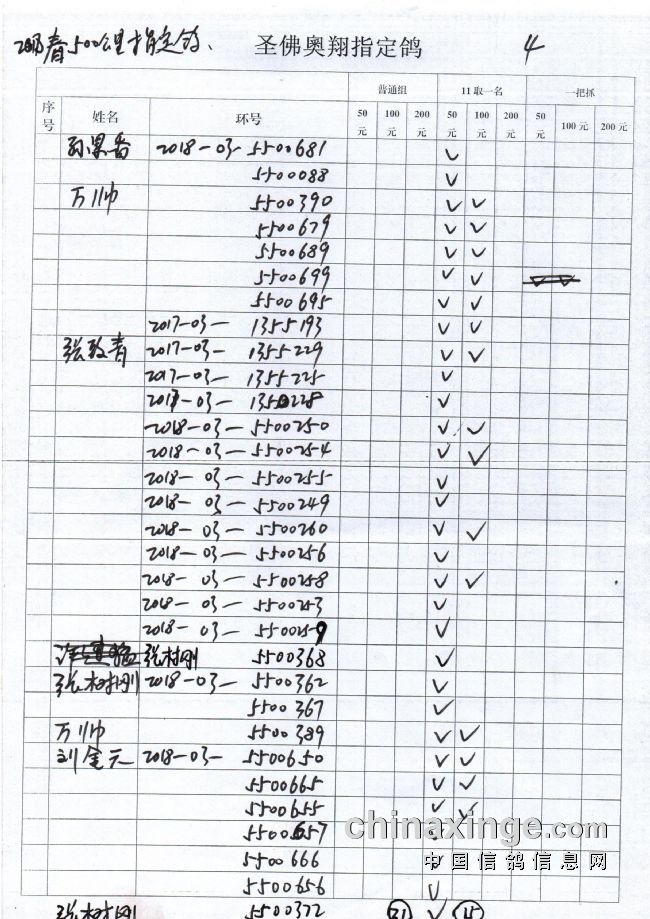 春500公里指定鸽、 圣佛奥翔指定鸽 4
普通组 11取一名 一把抓
序号 姓名 环号 50元 100元 200元 50元 100元 200元 50元 100元 200元
2018-03-5500681 ✓
5500088 ✓
万帅 5500390 ✓ ✓
5500679 ✓ ✓
5500689 ✓ ✓
5500699 ✓ ✓
5500695 ✓ ✓
2017-03-1355193 ✓ ✓
张致青 2017-03-1355229 ✓ ✓
2017-03-1355225 ✓
2017-03-1350228 ✓
2018-03-5500250 ✓ ✓
2018-03-5500254 ✓ ✓
2018-03-5500255 ✓
2018-03-5500249 ✓
2018-03-5500260 ✓ ✓
2018-03-5500256 ✓
2018-03-5500258 ✓ ✓
2018-03-5500253 ✓
2018-03-5500259 ✓
张树刚 5500368 ✓
张树刚 2018-03-5500362 ✓
5500367 ✓
万帅 5500389 ✓ ✓
刘金元 2018-03-5500650 ✓ ✓
5500665 ✓ ✓
5500655 ✓ ✓
5500657
5500666
5500656 ✓
张树刚 5500372 31 ✓ 15
chinaxinge.com
中国信鸽信息网